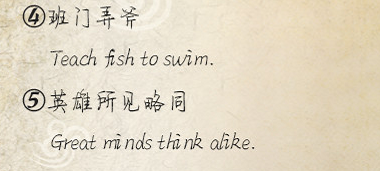 ④班门弄斧
Teach fish to swim.
⑤英雄所见略同
Great minds think alike.